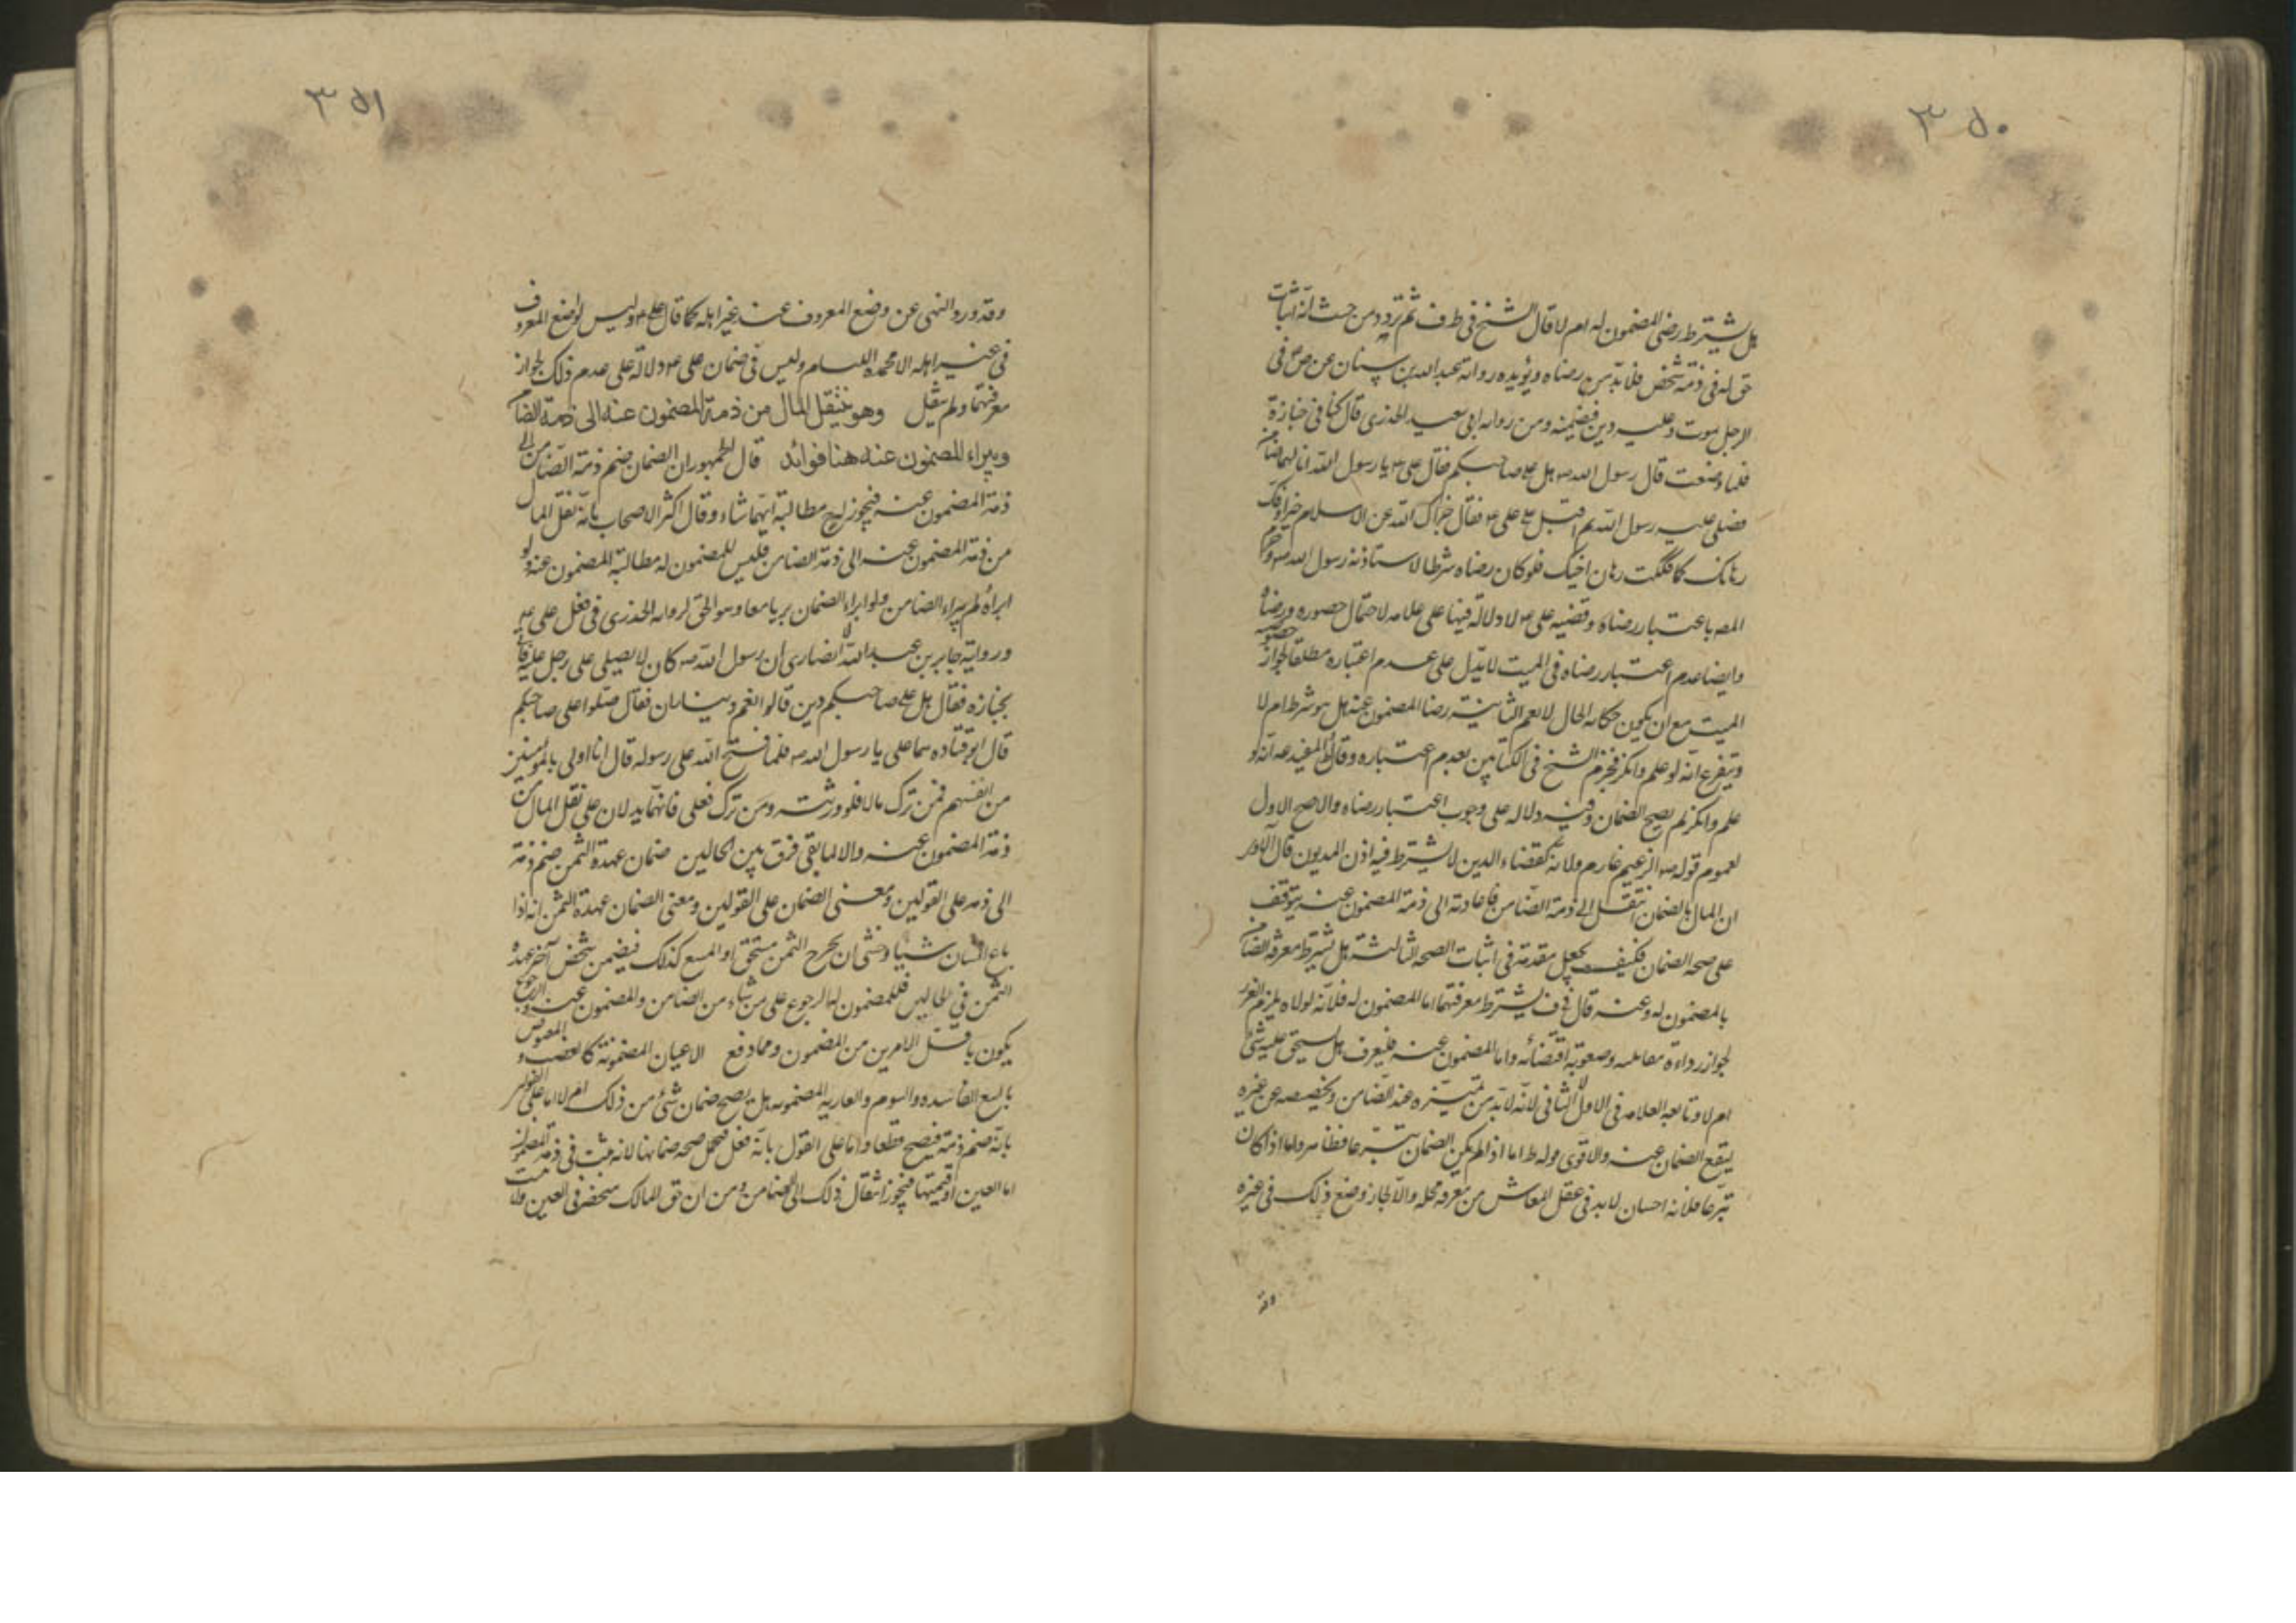 ٣٥٠
هل يشترط رضى المضمون له ام لا قال الشيخ فى ط ف ثم تردد من حيث انه اثبات
حق له فى ذمة شخص فلا بد من رضاه ويؤيده رواية عبد الله بن سنان عن ص ع فى
الرجل يموت وعليه دين فضمنه ومن رواية ابى سعيد الخدرى قال كنا فى جنازة
فلما وضعت قال رسول الله ص هل على صاحبكم فقال على ع يا رسول الله انا لهما ضامن
فصلى عليه رسول الله ثم اقبل على على ع فقال جزاك الله عن الاسلام خيرا وفك
رهانك كما فككت رهان اخيك فلو كان رضاه شرطا لاستاذنه رسول الله ص وجزم
المص باعتبار رضاه وقضيه على ع لا دلالة فيها على علامه لاحتمال حضوره ورضاه
وايضا عدم اعتبار رضاه فى الميت لا يدل على عدم اعتباره مطلقا لجواز خصوصية
الميت مع ان يكون حكاية الحال لا تعم الثانية رضا المضمون عنه هل هو شرط ام لا
ويتفرع انه لو علم وانكر فجزم الشيخ فى الكتابين بعدم اعتباره وقال المفيد ره انه لو
علم وانكر لم يصح الضمان وفيه دلاله على وجوب اعتبار رضاه والاصح الاول
لعموم قوله ص الزعيم غارم ولانه كقضاء الدين لا يشترط فيه اذن المديون قال الاخر
ان المال بالضمان انتقل الى ذمة الضامن فاعادته الى ذمة المضمون عنه يتوقف
على صحه الضمان فكيف يجعل مقدمة فى اثبات الصحه الثالثة هل يشترط معرفة الضامن
بالمضمون له وعنه قال فى ف يشترط معرفتهما اما المضمون له فلانه لولاه يلزم الغرر
لجواز رداءة معاملته وصعوبة اقتضائه واما المضمون عنه فليعرف هل يستحق عليه شئ
ام لا وتابعه العلامه فى الاول لا الثانى لانه لا بد من تميزه عند الضامن وتخصيصه عن غيره
ليقع الضمان عنه والاقوى قوله ط اما اذا لم يكن الضمان تبرعا فظاهر واما اذا كان
تبرعا فلانه احسان لا بد فى عقل المعاش من معرفة محله والا لجاز وضع ذلك فى غيره
وقد
٣٥١
وقد ورد النهى عن وضع المعروف عند غير اهله كما قال على ع وليس لواضع المعروف
فى غير اهله الا محمدة اللئام وليس فى ضمان على ع دلالة على عدم ذلك لجواز
معرفتهما ولم ينقل وهو ينقل المال من ذمة المضمون عنه الى ذمة الضامن
ويبراء المضمون عنه هنا فوائد قال الجمهور ان الضمان ضم ذمة الضامن الى
ذمة المضمون عنه فيجوز له مطالبة ايهما شاء وقال اكثر الاصحاب بانه نقل المال
من ذمة المضمون عنه الى ذمة الضامن فليس للمضمون له مطالبة المضمون عنه ولو
ابراه لم يبراء الضامن ولو ابراء الضمان بريا معا وهو الحق لروايه الخدرى فى فعل على ع
ورواية جابر بن عبد الله الانصارى ان رسول الله ص كان لا يصلى على رجل عليه فاتى
بجنازه فقال هل على صاحبكم دين قالوا نعم ديناران فقال صلوا على صاحبكم
قال ابو قتاده هما على يا رسول الله ص فلما فتح الله على رسوله قال انا اولى بالمومنين
من انفسهم فمن ترك مالا فلورثته ومن ترك فعلى فانهما يدلان على نقل المال من
ذمة المضمون عنه والا لما بقى فرق بين الحالين ضمان عهدة الثمن ضم ذمة
الى ذمه على القولين ومعنى الضمان على القولين ومعنى الضمان عهدة الثمن انه اذا
باع انسان شيئا وخشى ان يخرج الثمن مستحق او المبيع كذلك فيضمن شخص آخر عهدة
الثمن فى الحالين فللمضمون له الرجوع على من شاء من الضامن والمضمون عنه والرجوع
يكون باقل الامرين من المضمون ومما دفع الاعيان المضمونة كالغصب والمقبوض
بالبيع الفاسده والسوم والعاريه المضمونه هل يصح ضمان شئ من ذلك ام لا اما على القول
بانه ضم ذمة فيصح قطعا واما على القول بانه نقل فيحتمل صحه ضمانها لانه مثبت فى ذمة المضمون
اما العين او قيمتها فيجوز انتقال ذلك الى الضامن ومن ان حق المالك منحصر فى العين ولا